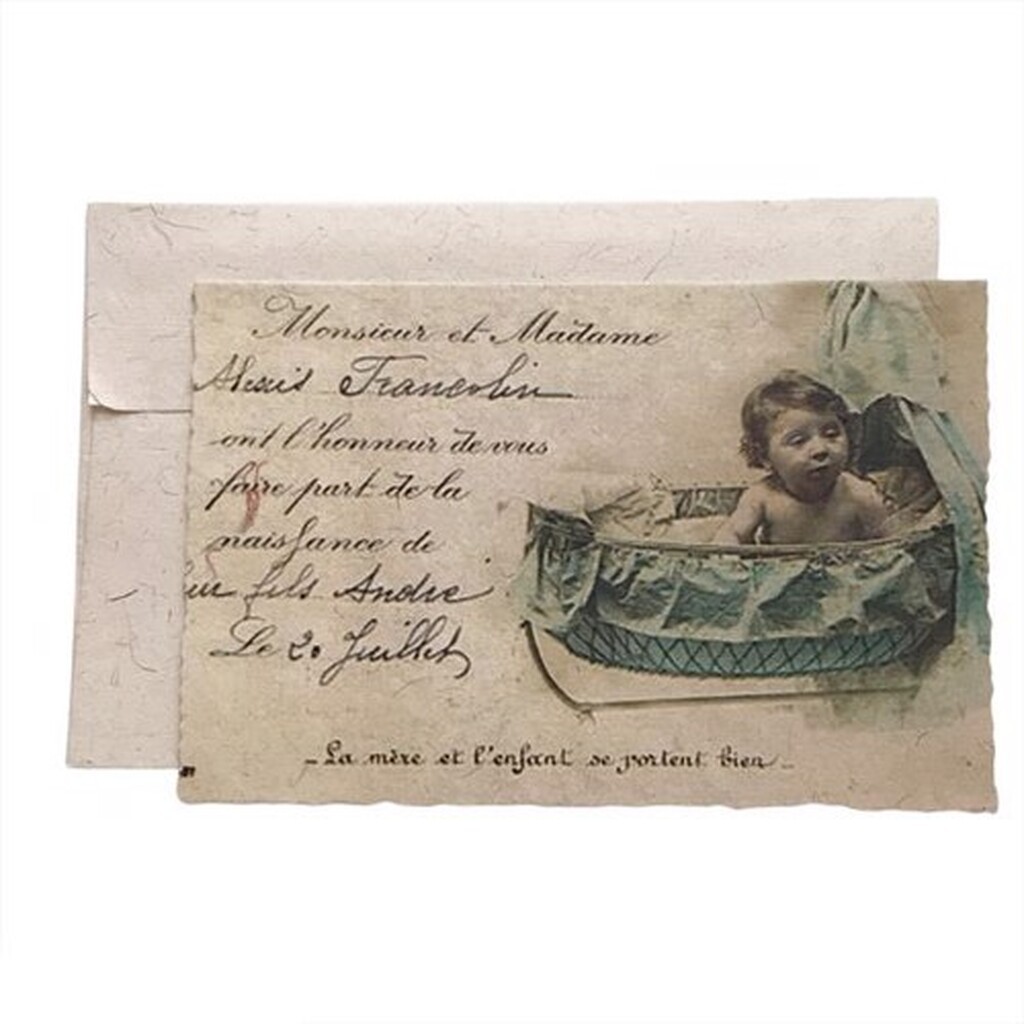 Monsieur et Madame
Alexis Francolin
ont l'honneur de vous
faire part de la
naissance de
eur fils André
Le 20 Juillet
- La mère et l'enfant se portent bien -